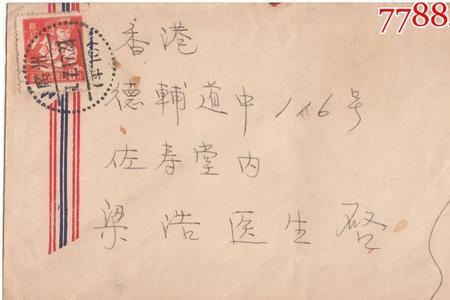 7788
香港
德輔道中116号
佐寿堂内
梁浩医生啓